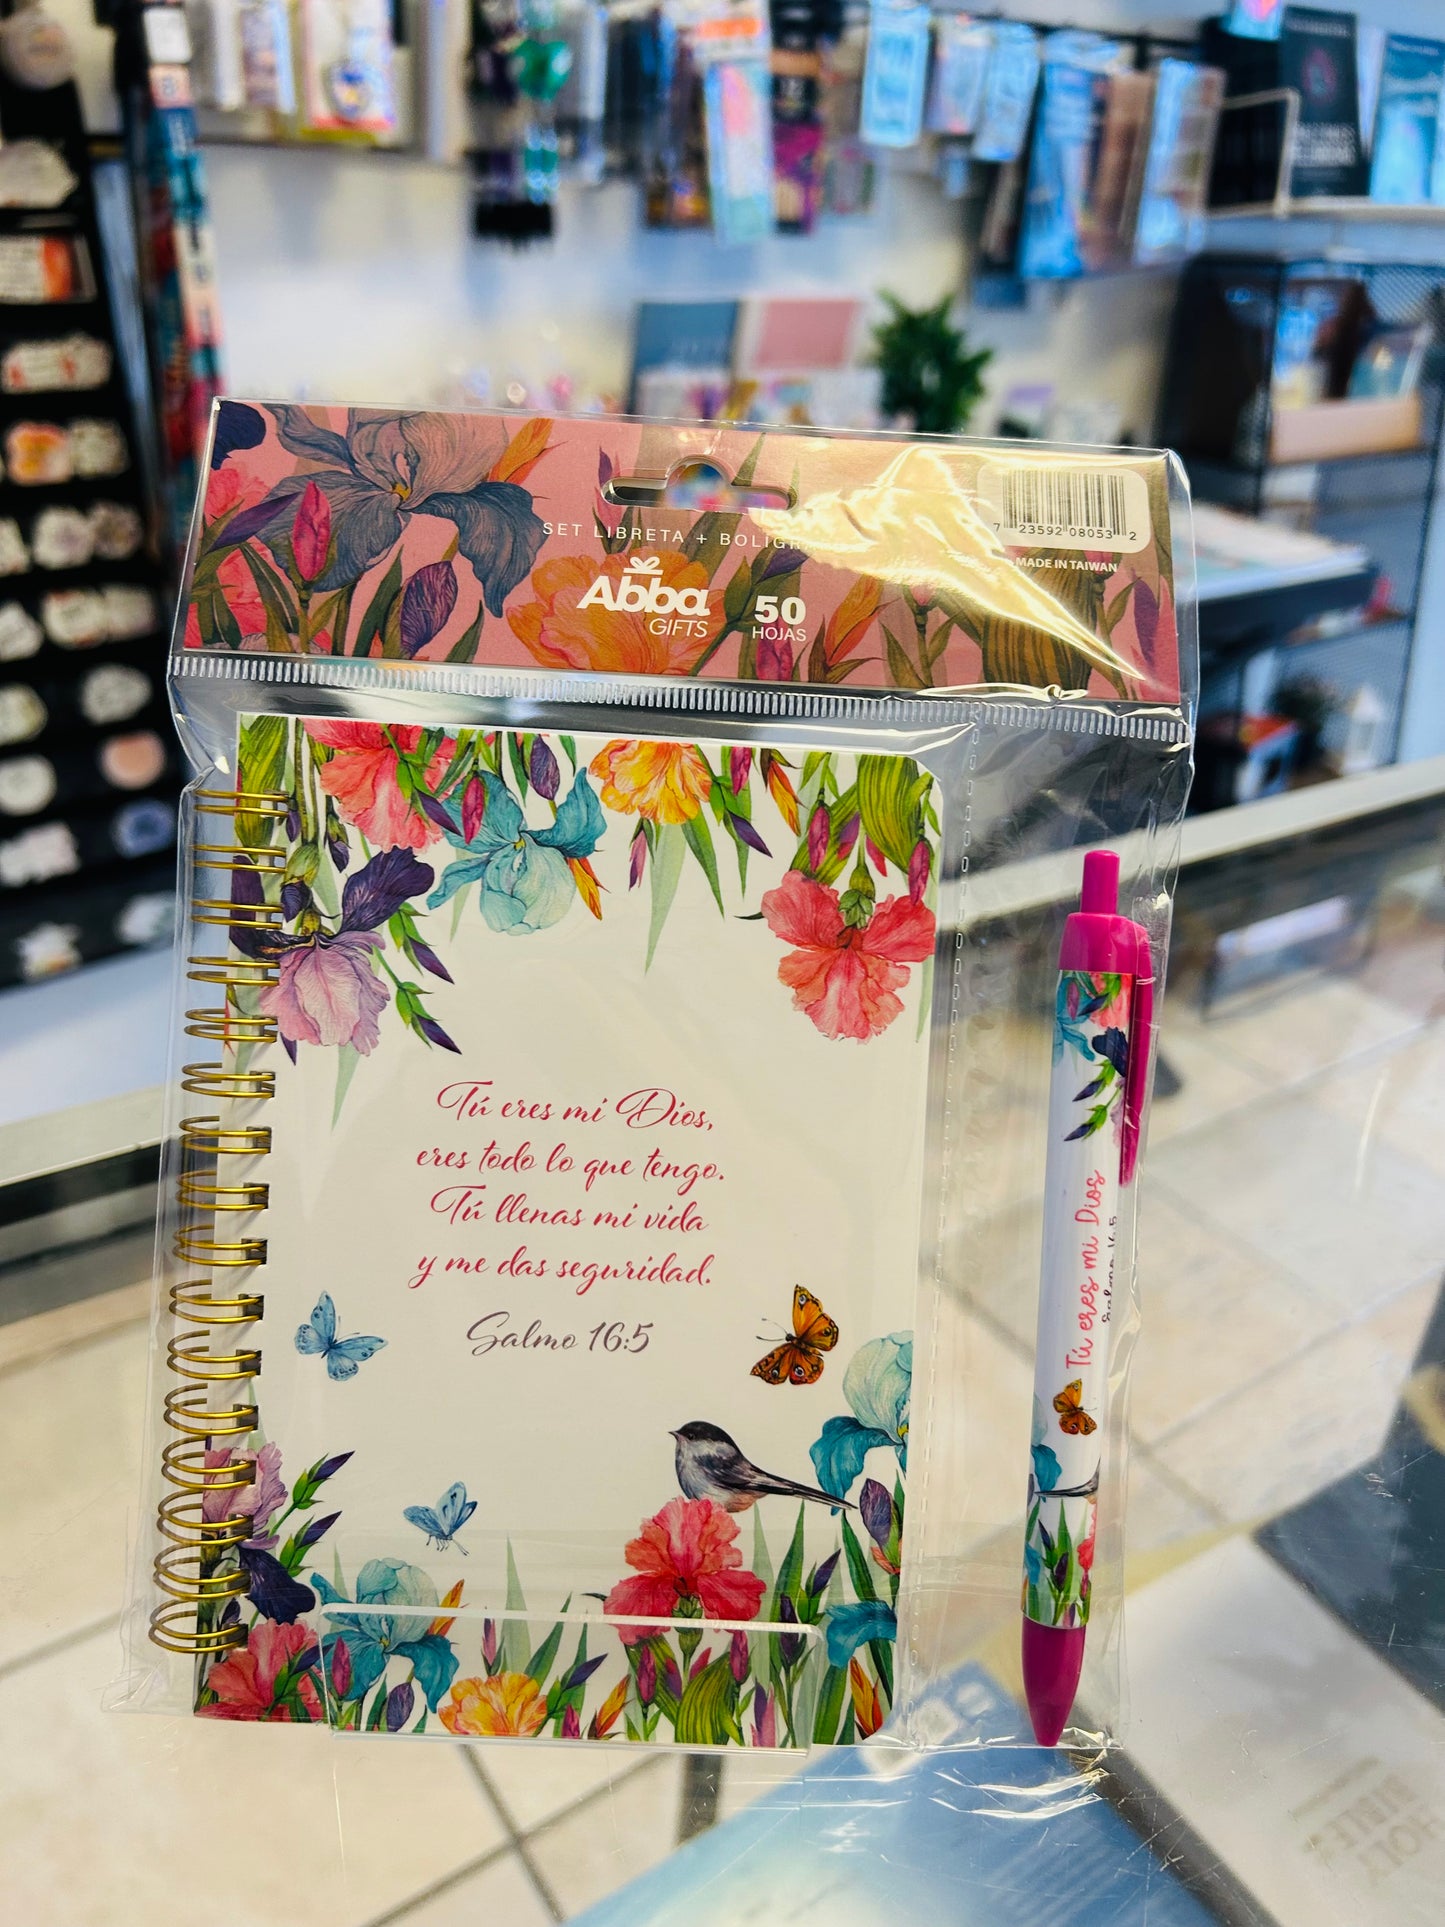 SET LIBRETA + BOLIGR
Abba
GIFTS
50
HOJAS
7 23592 08053 2
MADE IN TAIWAN
Tú eres mi Dios,
eres todo lo que tengo.
Tú llenas mi vida
y me das seguridad.
Salmo 16:5
Tú eres mi Dios
Salmo 16:5
HOLY
BIBLE